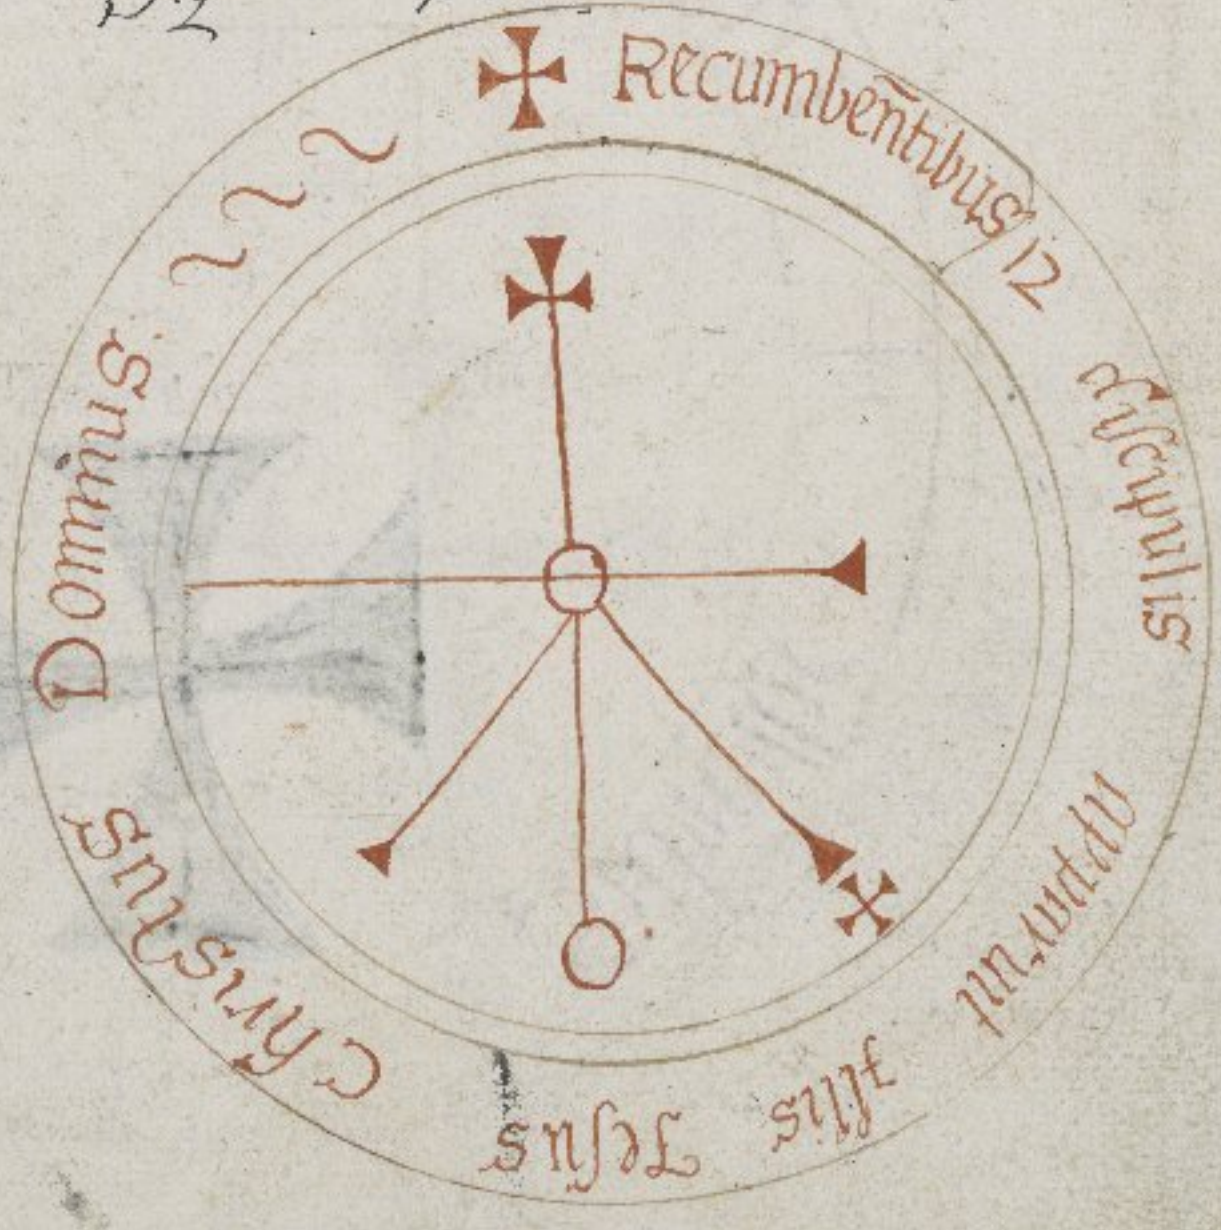 ✠ Recumbeñtibus 12 discipulis apparuit Illis Jesus Christus Dominus